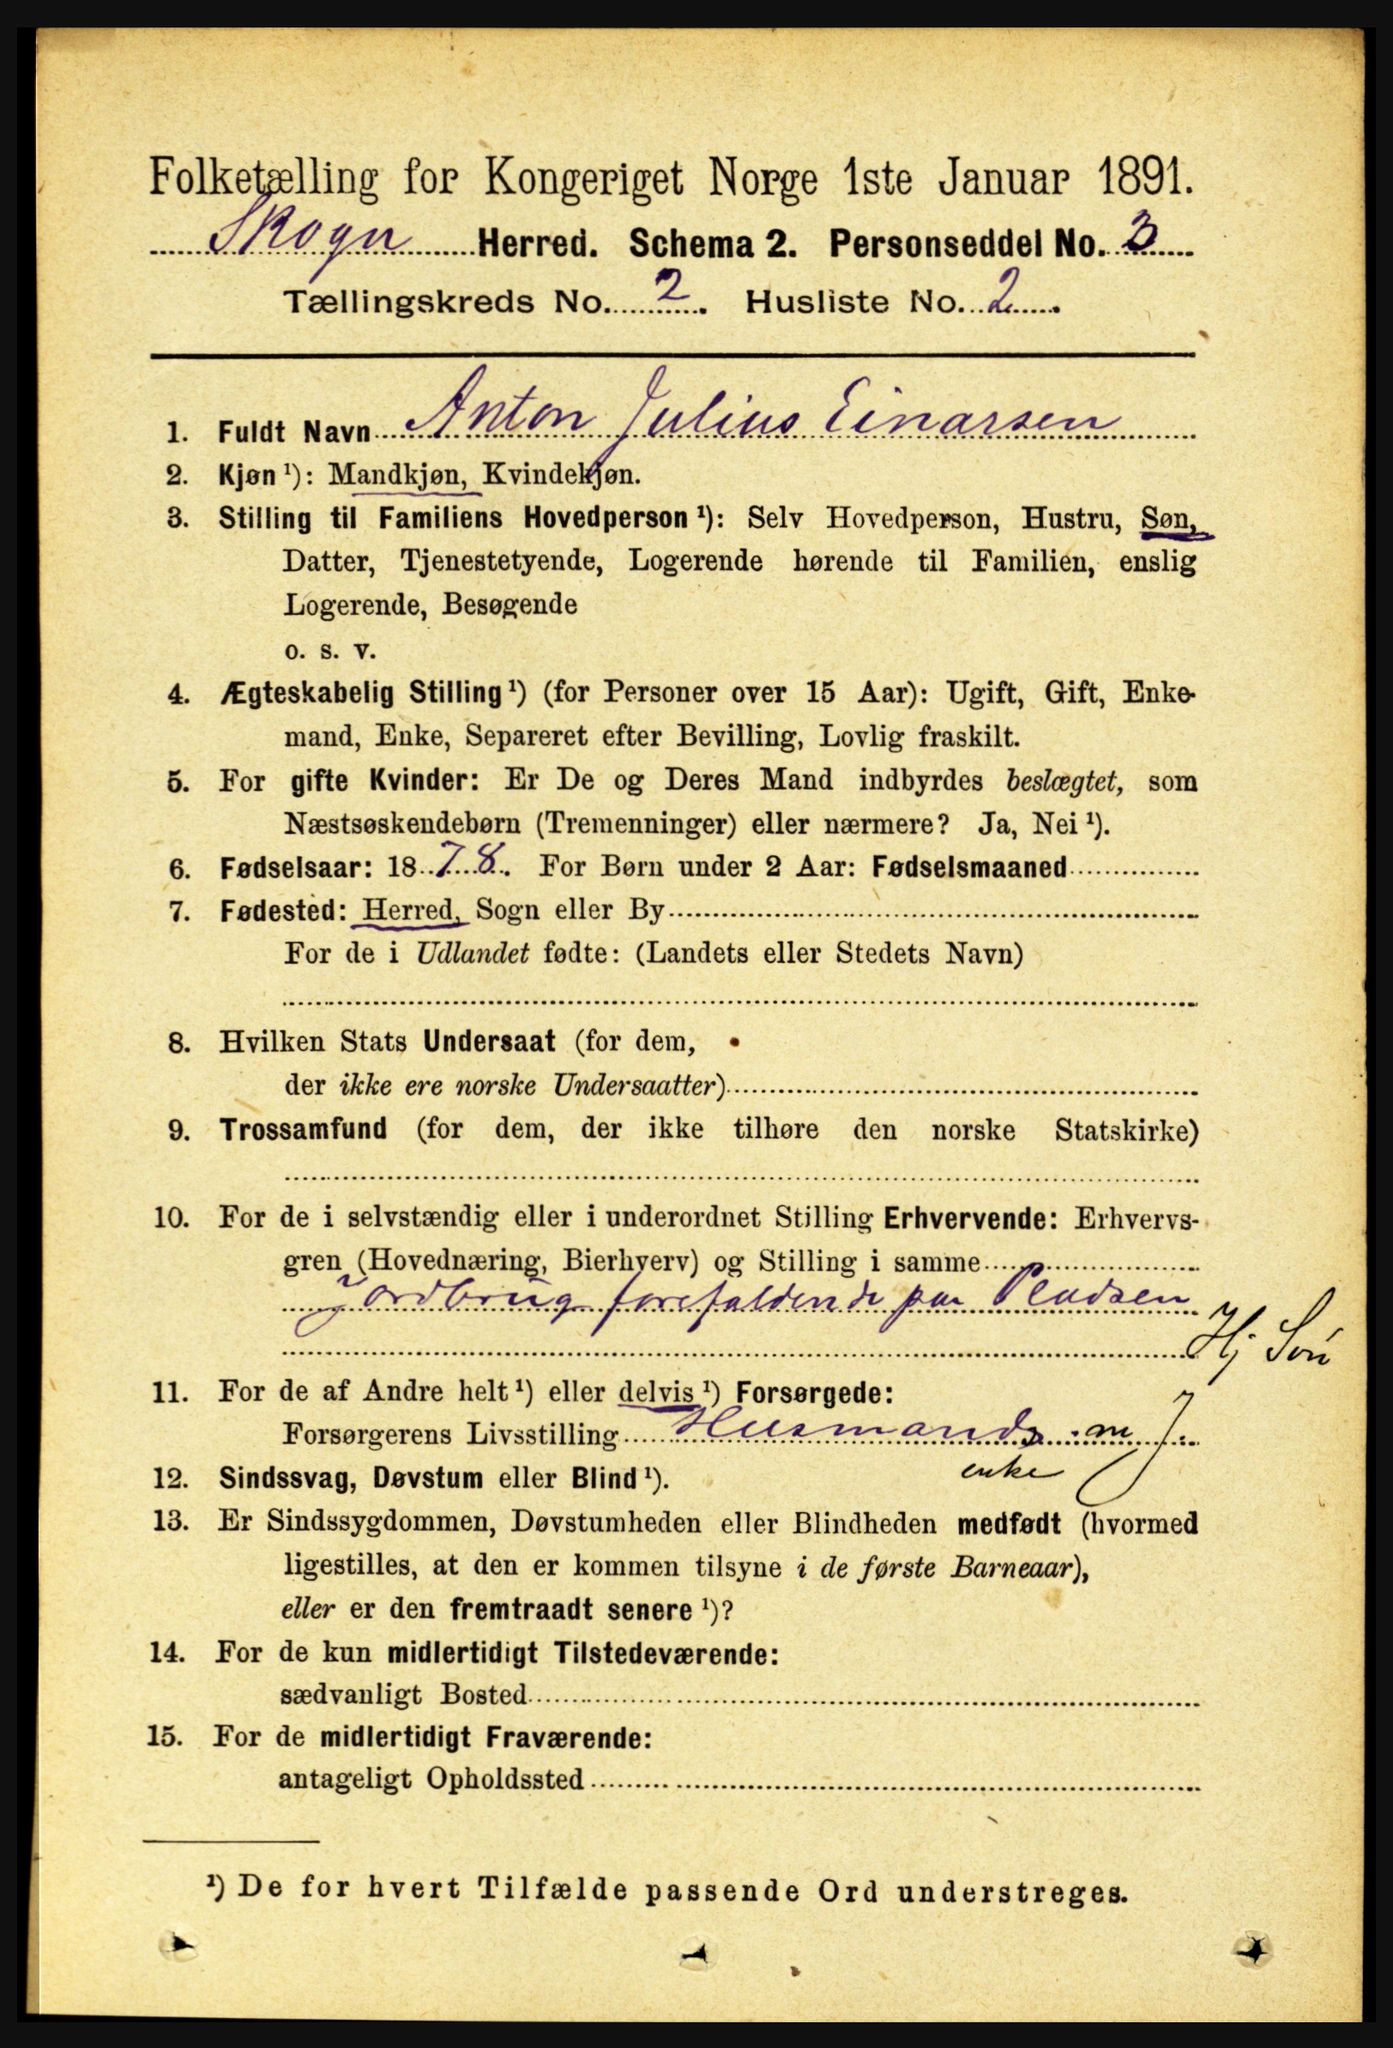 Folketælling for Kongeriget Norge 1ste Januar 1891.
Skogn Herred. Schema 2. Personseddel No. 3
Tællingskreds No. 2. Husliste No. 2.
1. Fuldt Navn Anton Julius Einarsen
2. Kjøn ¹): Mandkjøn, Kvindekjøn.
3. Stilling til Familiens Hovedperson ¹): Selv Hovedperson, Hustru, Søn,
Datter, Tjenestetyende, Logerende hørende til Familien, enslig
Logerende, Besøgende
o. s. v.
4. Ægteskabelig Stilling ¹) (for Personer over 15 Aar): Ugift, Gift, Enke-
mand, Enke, Separeret efter Bevilling, Lovlig fraskilt.
5. For gifte Kvinder: Er De og Deres Mand indbyrdes beslægtet, som
Næstsøskendebørn (Tremenninger) eller nærmere? Ja, Nei ¹).
6. Fødselsaar: 1878. For Børn under 2 Aar: Fødselsmaaned
7. Fødested: Herred, Sogn eller By
For de i Udlandet fødte: (Landets eller Stedets Navn)
8. Hvilken Stats Undersaat (for dem,
der ikke ere norske Undersaatter)
9. Trossamfund (for dem, der ikke tilhøre den norske Statskirke)
10. For de i selvstændig eller i underordnet Stilling Erhvervende: Erhvervs-
gren (Hovednæring, Bierhverv) og Stilling i samme
Jordbrug forefaldende paa Pladsen
Hj Søn
11. For de af Andre helt ¹) eller delvis ¹) Forsørgede:
Forsørgerens Livsstilling Husmands m J.
enke
12. Sindssvag, Døvstum eller Blind ¹).
13. Er Sindssygdommen, Døvstumheden eller Blindheden medfødt (hvormed
ligestilles, at den er kommen tilsyne i de første Barneaar),
eller er den fremtraadt senere ¹)?
14. For de kun midlertidigt Tilstedeværende:
sædvanligt Bosted
15. For de midlertidigt Fraværende:
antageligt Opholdssted
¹) De for hvert Tilfælde passende Ord understreges.